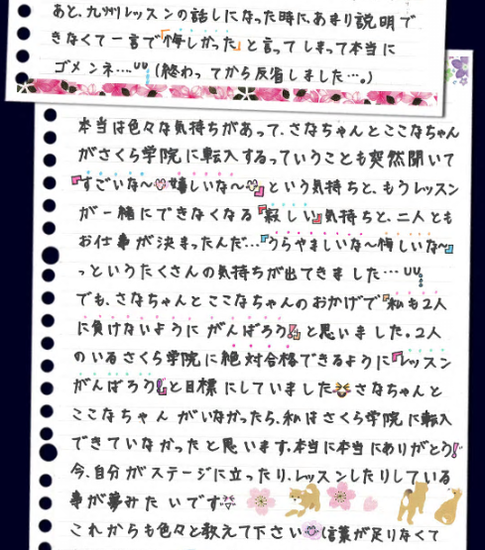 あと、九州レッスンの話しになった時に、あまり説明で
きなくて一言で『悔しかった』と言ってしまって本当に
ゴメンネ…。(終わってから反省しました…。)
本当は色々な気持ちがあって、さなちゃんとここなちゃん
がさくら学院に転入するっていうことも突然聞いて
『すごいな〜嬉しいな〜』という気持ちと、もうレッスン
が一緒にできなくなる『寂しい』気持ちと、二人とも
お仕事が決まったんだ…『うらやましいな〜悔しいな〜』
っというたくさんの気持ちが出てきました…
でも、さなちゃんとここなちゃんのおかげで『私も2人
に負けないようにがんばろう!』と思いました。2人
のいるさくら学院に絶対合格できるように『レッスン
がんばろう!』と目標にしていました さなちゃんと
ここなちゃんがいなかったら、私はさくら学院に転入
できていなかったと思います。本当に本当にありがとう!
今、自分がステージに立ったり、レッスンしたりしている
事が夢みたいです
これからも色々と教えて下さい (言葉が足りなくて